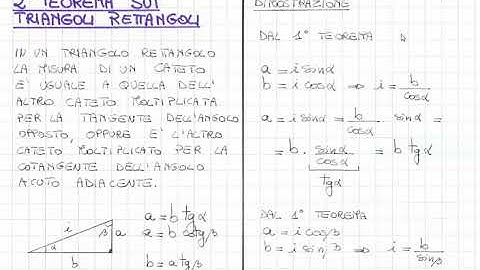 2° TEOREMA SUI
TRIANGOLI RETTANGOLI
IN UN TRIANGOLO RETTANGOLO
LA MISURA DI UN CATETO
E' UGUALE A QUELLA DELL'
ALTRO CATETO MOLTIPLICATA
PER LA TANGENTE DELL'ANGOLO
OPPOSTO, OPPURE E' L'ALTRO
CATETO MOLTIPLICATO PER LA
COTANGENTE DELL'ANGOLO
ACUTO ADIACENTE.
i
β
a
α
b
a = b tg α
a = b cotg β
b = a tg β
DIMOSTRAZIONE
DAL 1° TEOREMA
a = i sin α
b = i cos α ⇒ i = b / cos α
a = i sin α = b / cos α · sin α =
= b · sin α / cos α = b tg α
tg α
DAL 1° TEOREMA
a = i cos β
b = i sin β ⇒ i = b / sin β